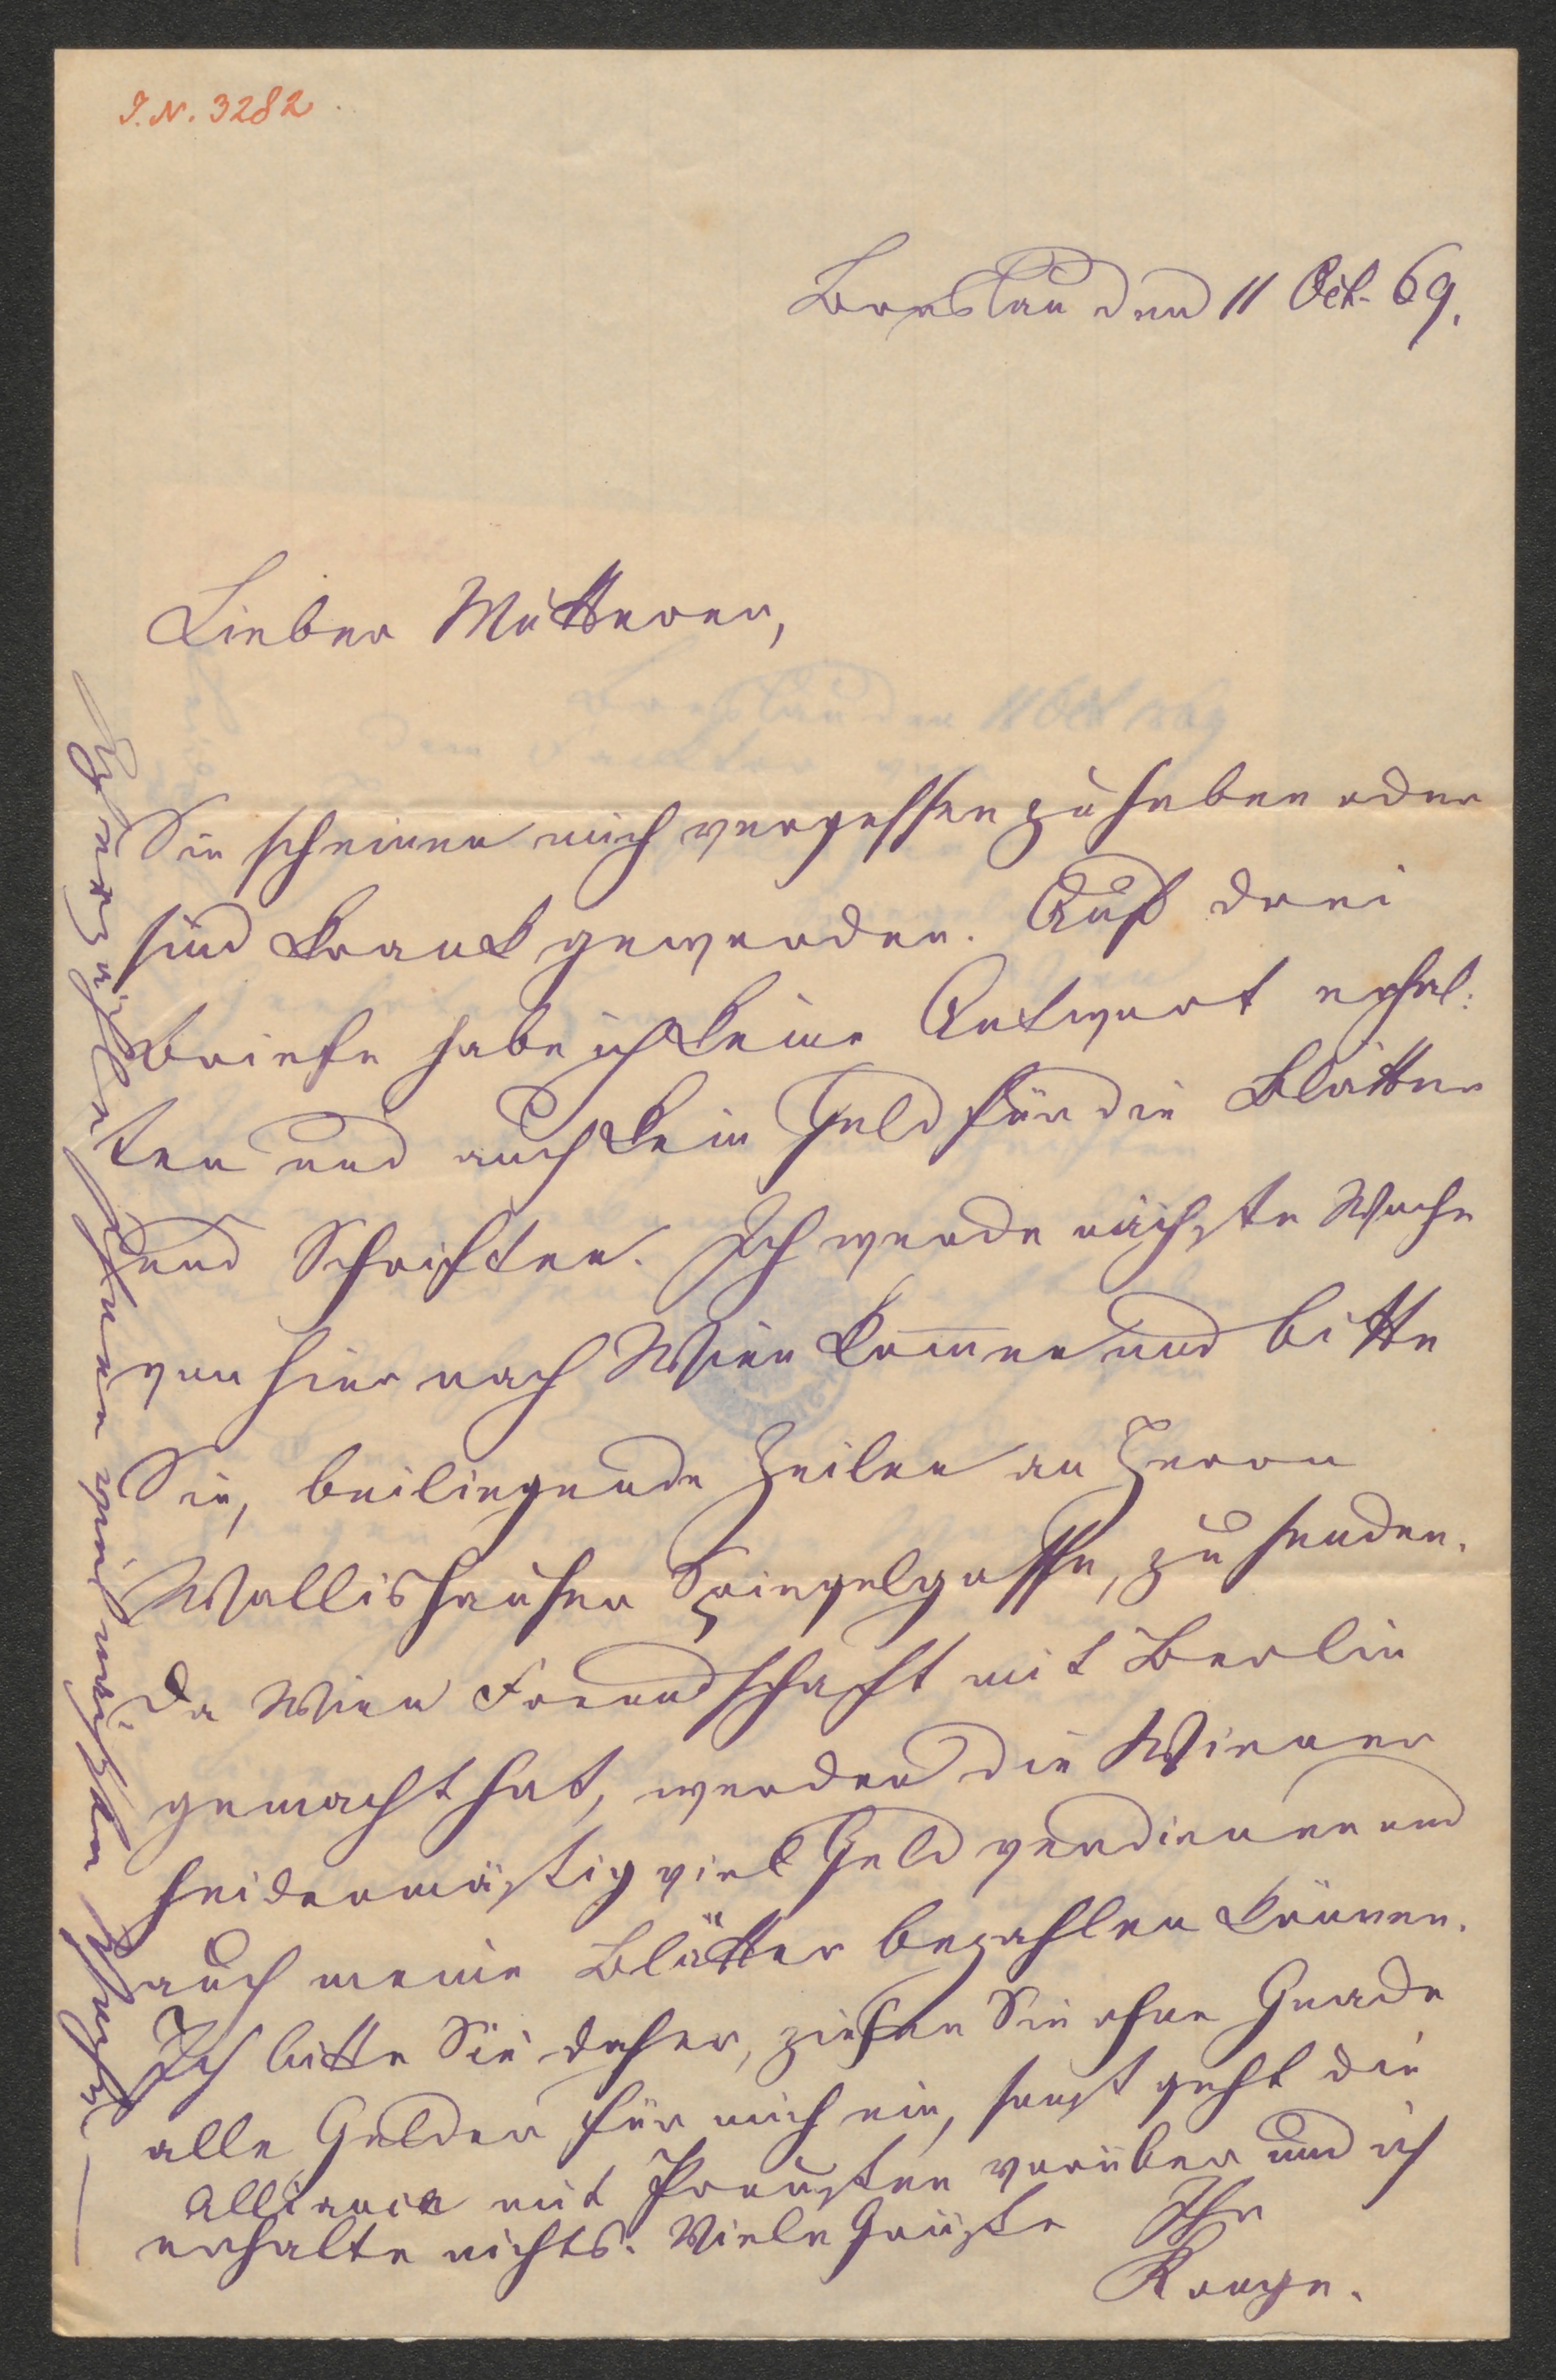 I.N. 3282
Breslau den 11 Oct. 69.
Lieber Mutterer,
Sie scheinen mich vergessen zu haben oder
sind krank geworden. Auf drei
Briefe habe ich keine Antwort erhal:
ten und auch kein Geld für die Blätter
und Schriften. Ich werde nächste Woche
von hier nach Wien kommen und bitte
Sie, beiliegende Zeilen an Herrn
Wallishauser Spiegelgasse, zu senden.
Da Wien Freundschaft mit Berlin
gemacht hat, werden die Wiener
heidenmäßig viel Geld verdienen und
auch meine Blätter bezahlen können.
Ich bitte Sie daher, ziehen Sie ohne Gnade
alle Gelder für mich ein, sonst geht die
Allianca mit Preußen vorüber und ich
erhalte nichts. Viele Grüße Ihr
Ronge.